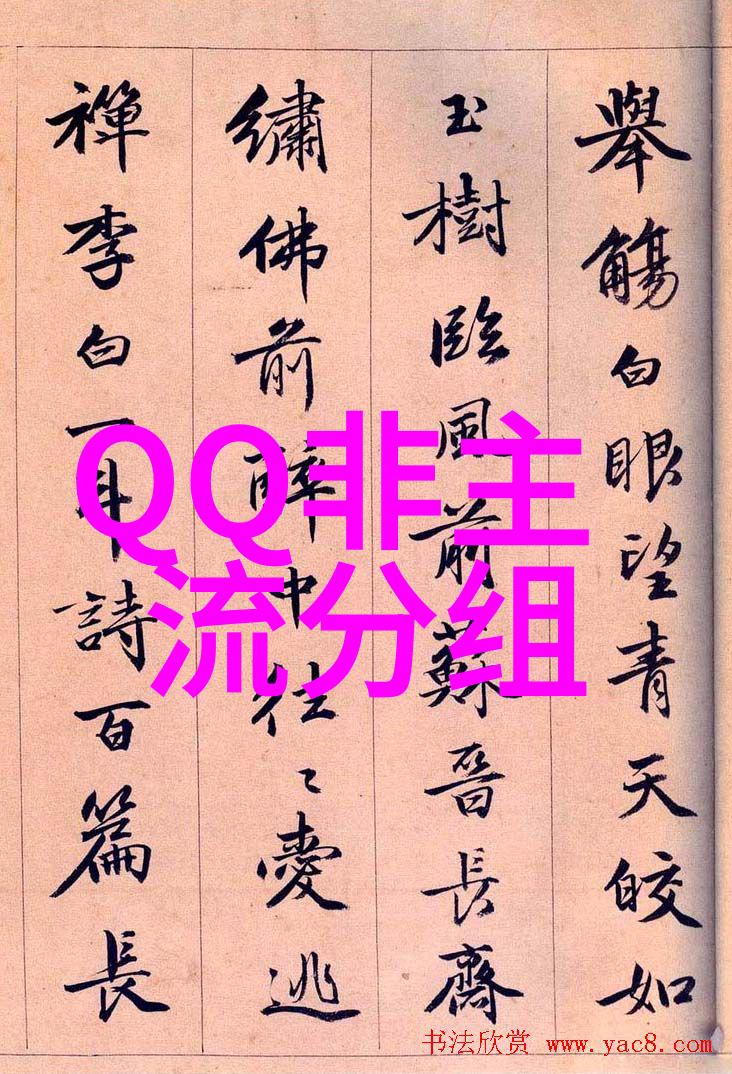 舉觴白眼望青天皎如
玉樹臨風前蘇晉長齋
繡佛前醉中往〻愛逃
禪李白一斗詩百篇長
QQ非主
流分组
书法欣赏 www.yac8.com